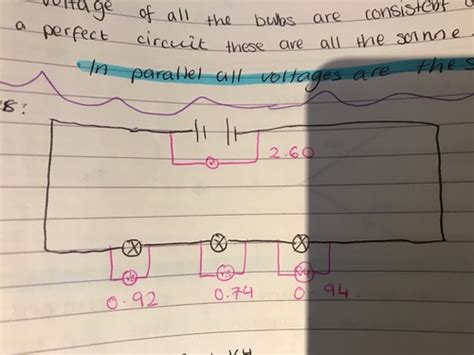 voltage of all the bulbs are consistent
a perfect circuit these are all the same
In parallel all voltages are the s
s:
2.60
0.92 0.74 0.94